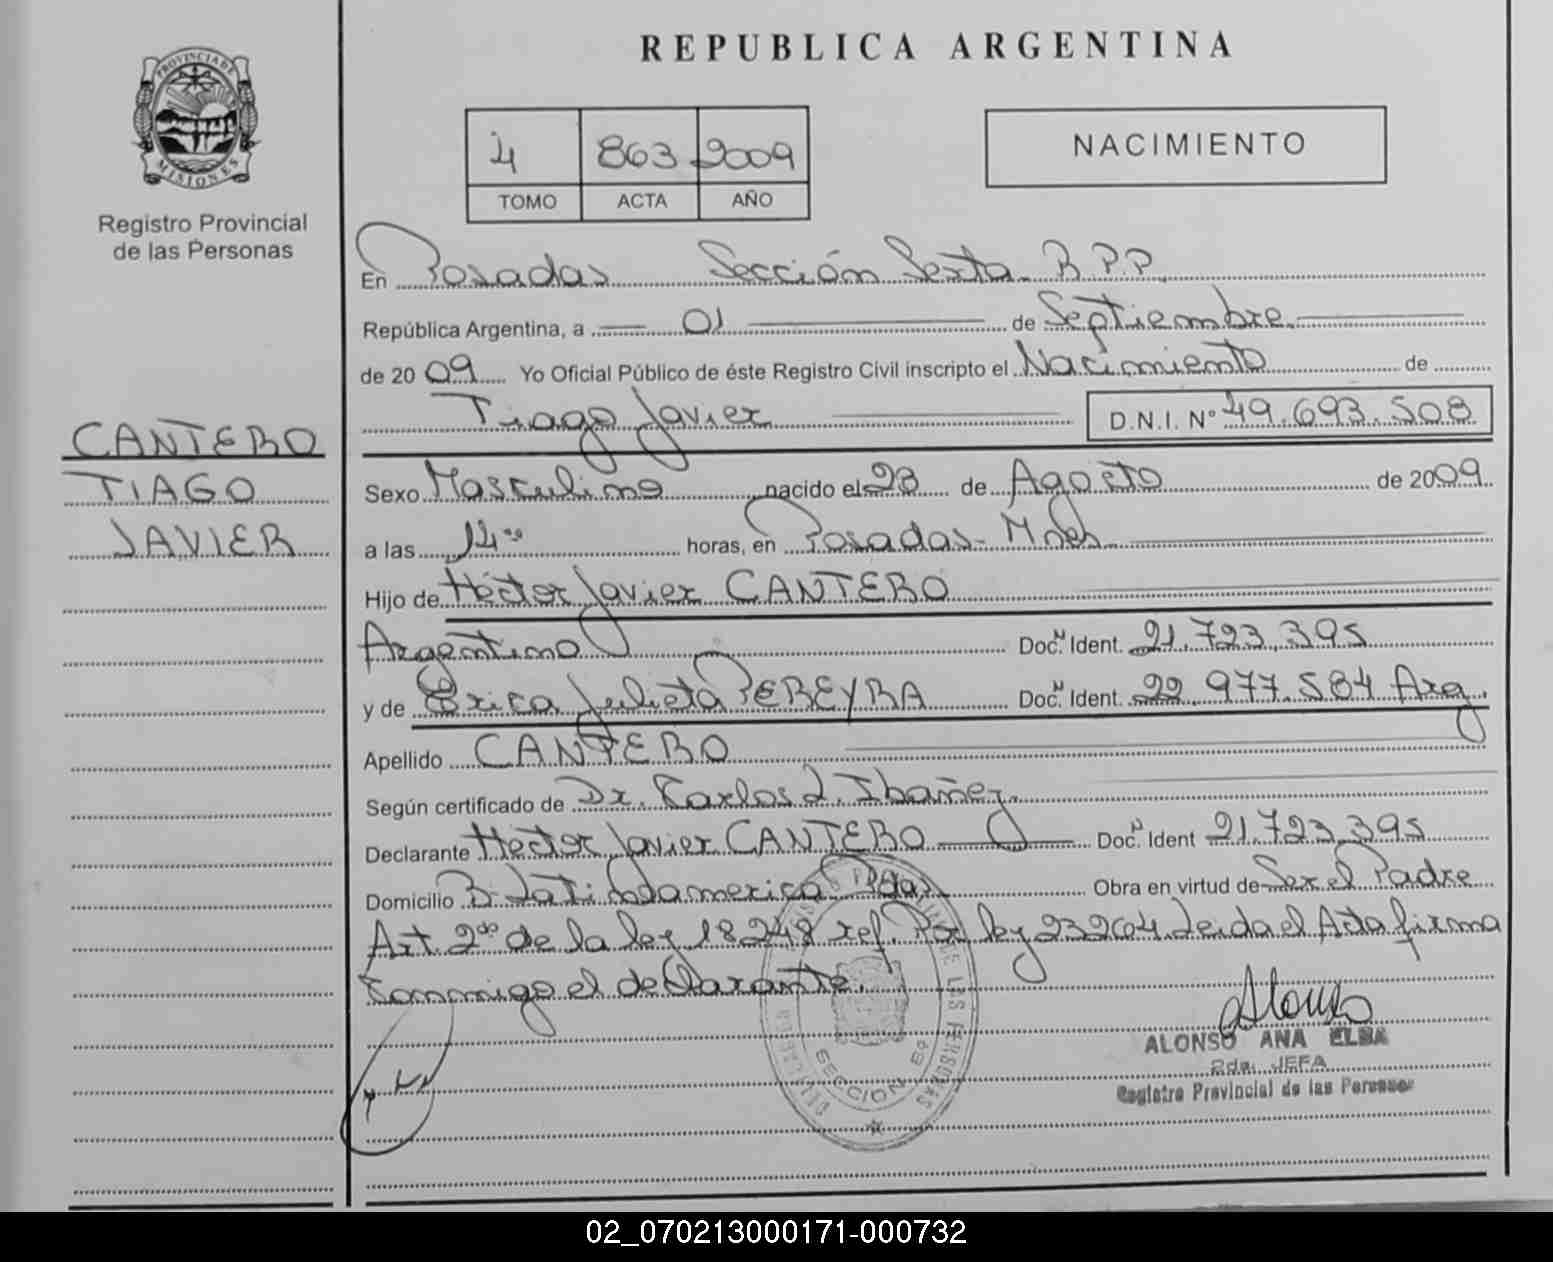 REPUBLICA ARGENTINA
PROVINCIA DE
MISIONES
Registro Provincial
de las Personas
4 863 2009
TOMO ACTA AÑO
NACIMIENTO
En Posadas Sección Sexta R.P.P.
República Argentina, a 01 de Septiembre
de 2009 Yo Oficial Público de éste Registro Civil inscripto el Nacimiento de
Tiago Javier D.N.I. N° 49.693.508
CANTERO
TIAGO
JAVIER
Sexo Masculino nacido el 28 de Agosto de 2009
a las 14 horas, en Posadas - Mnes
Hijo de Héctor Javier CANTERO
Argentino Doc. N Ident. 21.723.395
y de Erica Julieta PEREYRA Doc. N Ident. 22.977.584 Arg.
Apellido CANTERO
Según certificado de Dr. Carlos L. Ibañez.
Declarante Héctor Javier CANTERO Doc. N Ident 21.723.395
Domicilio B. Latinoamerica Pdas. Obra en virtud de Ser el Padre
Art. 2do de la ley 18248 ref. Por ley 23264. Leida el Acta firma
conmigo el declarante.
SECCION 6ª
DE LAS PERSONAS
Alonso
ALONSO ANA ELBA
2da. JEFA
Registro Provincial de las Personas
02_070213000171-000732